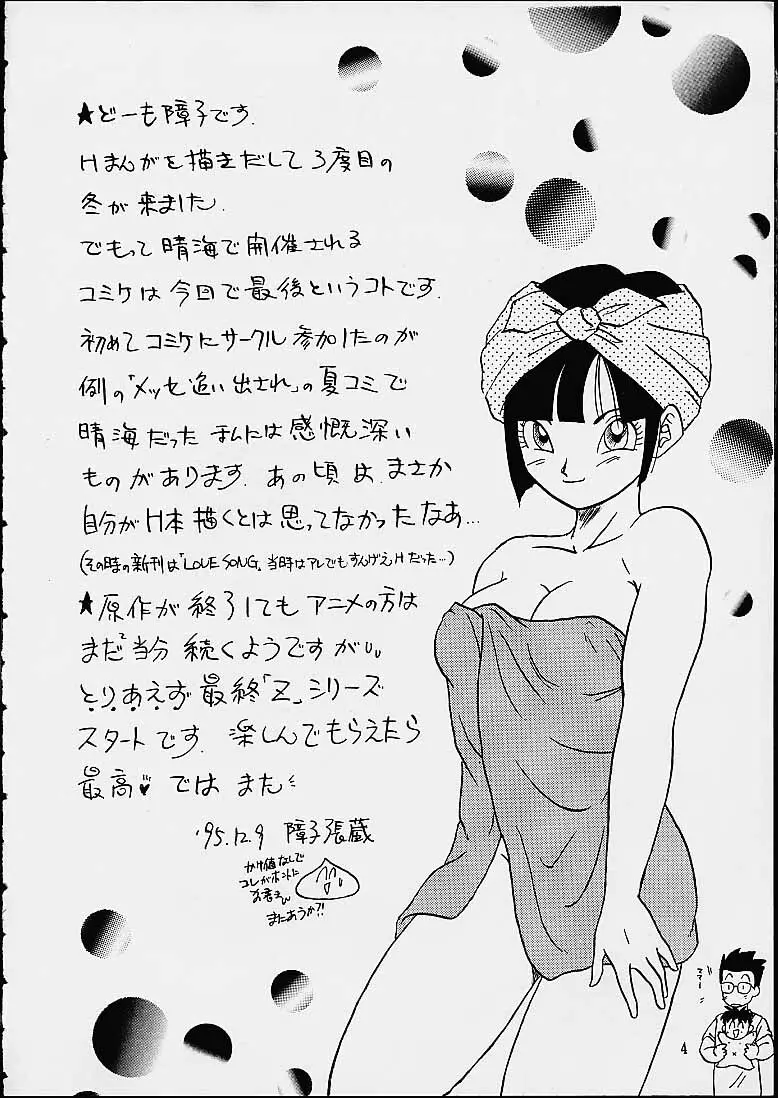 ★どーも障子です.
Hまんがを描きだして3度目の
冬が来ました.
でもって晴海で開催される
コミケは今回で最後というコトです.
初めてコミケにサークル参加したのが
例の「メッセ追い出され」の夏コミで
晴海だったまんには感慨深い
ものがあります. あの頃は.まさか
自分がH本描くとは思ってなかったなあ…
(その時の新刊は「LOVE SONG」. 当時はアレでもすんげえHだった…)
★原作が終了してもアニメの方は
まだ当分続くようですが
とりあえず最終「Z」シリーズ
スタートです. 楽しんでもらえたら
最高♥ ではまた
'95.12.9 障子張蔵
かけ値なしで
コレがホントに
またあうか?!
4